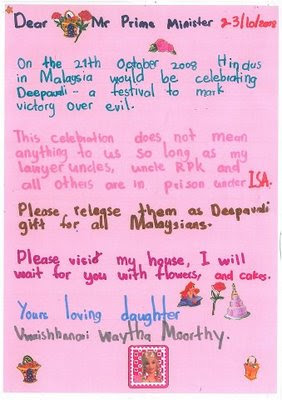 Dear Mr Prime Minister 2-3/10/2008
On the 27th October 2008 Hindus
in Malaysia would be celebrating
Deepavali - a festival to mark
victory over evil.
This celebration does not mean
anything to us so long as my
lawyer uncles, uncle RPK and
all others are in prison under ISA.
Please release them as Deepavali
gift for all Malaysians.
Please visit my house, I will
wait for you with flowers, and cakes.
Yours loving daughter
Waytha Moorthy.